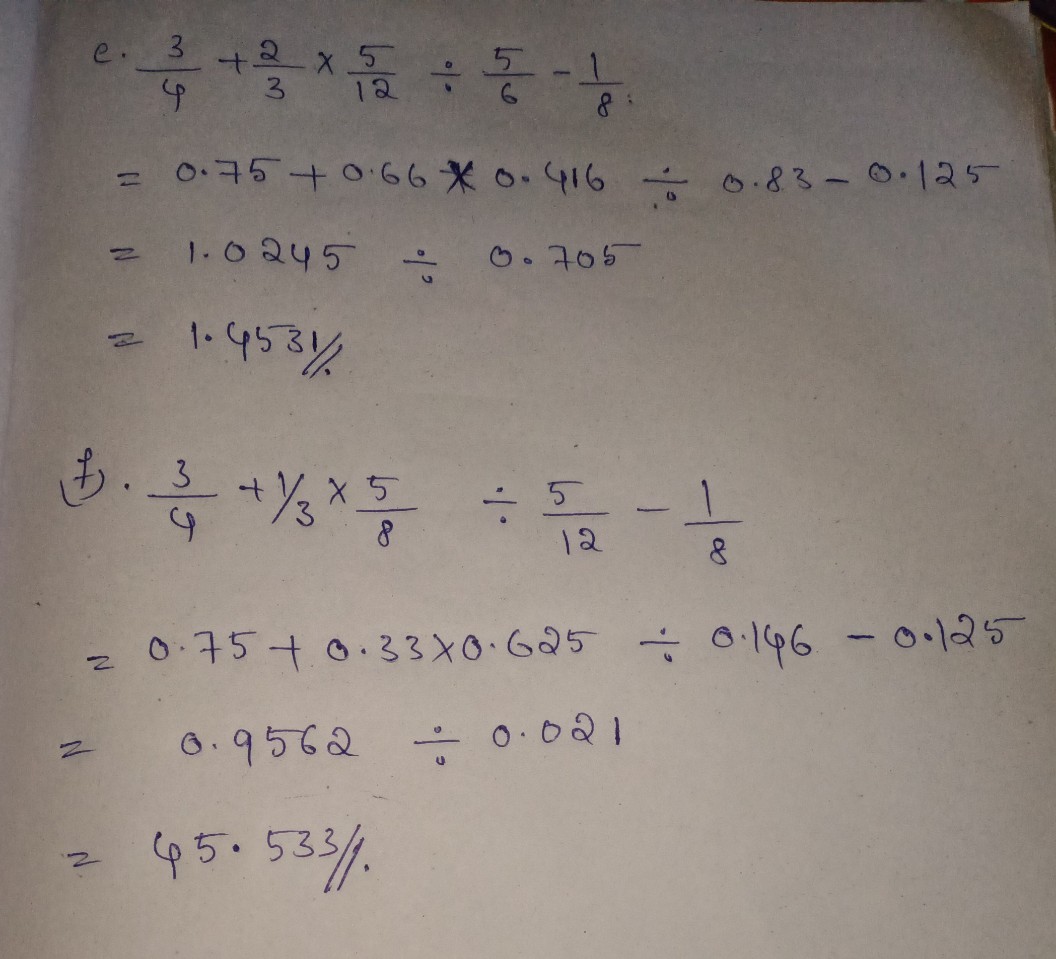 e. 3/4 + 2/3 × 5/12 ÷ 5/6 - 1/8.
= 0.75 + 0.66 × 0.416 ÷ 0.83 - 0.125
= 1.0245 ÷ 0.705
= 1.4531//.
f. 3/4 + 1/3 × 5/8 ÷ 5/12 - 1/8
= 0.75 + 0.33 × 0.625 ÷ 0.146 - 0.125
= 0.9562 ÷ 0.021
= 45.533//.